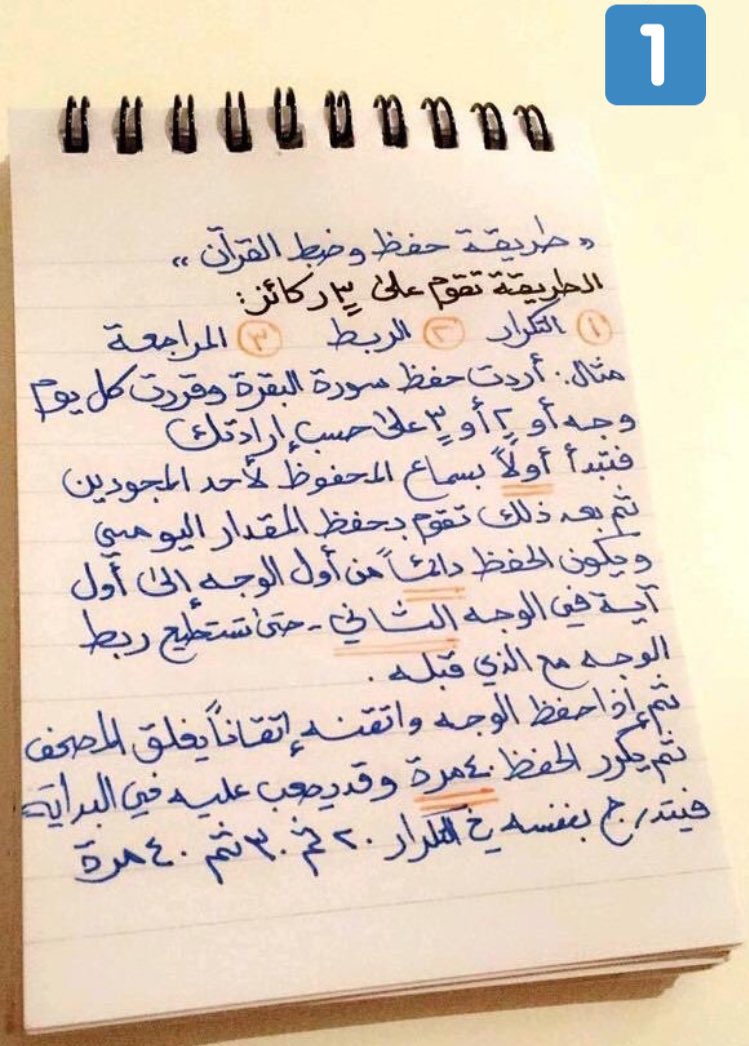 1
« طريقة حفظ وضبط القرآن »
الطريقة تقوم على ٣ ركائز:
١ التكرار ٢ الربط ٣ المراجعة
مثال: أردت حفظ سورة البقرة وقررت كل يوم
وجه أو ٢ أو ٣ على حسب إرادتك
فتبدأ أولاً بسماع المحفوظ لأحد المجودين
ثم بعد ذلك تقوم بحفظ المقدار اليومي
ويكون الحفظ دائماً من أول الوجه إلى أول
آية في الوجه الثاني - حتى تستطيع ربط
الوجه مع الذي قبله .
ثم إذا حفظ الوجه واتقنه إتقاناً يغلق المصحف
ثم يكرر الحفظ ٤٠ مرة وقد يصعب عليه في البداية
فيتدرج بنفسه في التكرار ٢٠ ثم ٣٠ ثم ٤٠ مرة